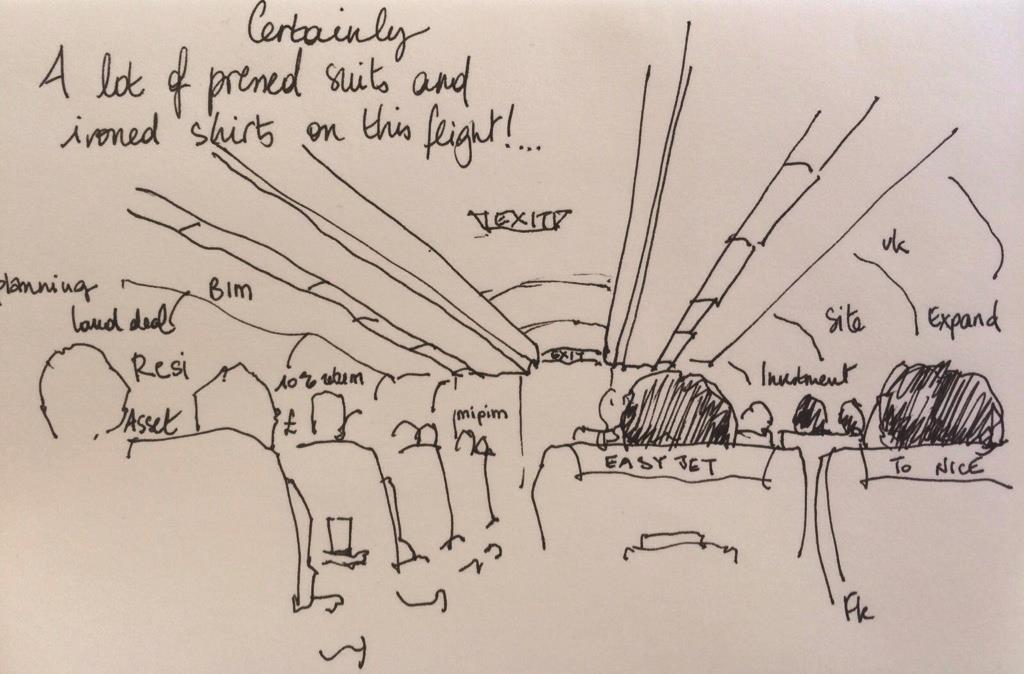 Certainly
A lot of presed suits and
ironed shirts on this flight!...
EXIT
uk
planning
BIM
Land deals
Site
Expand
EXIT
Resi
10% return
Investment
Asset
£
mipim
EASY JET
TO NICE